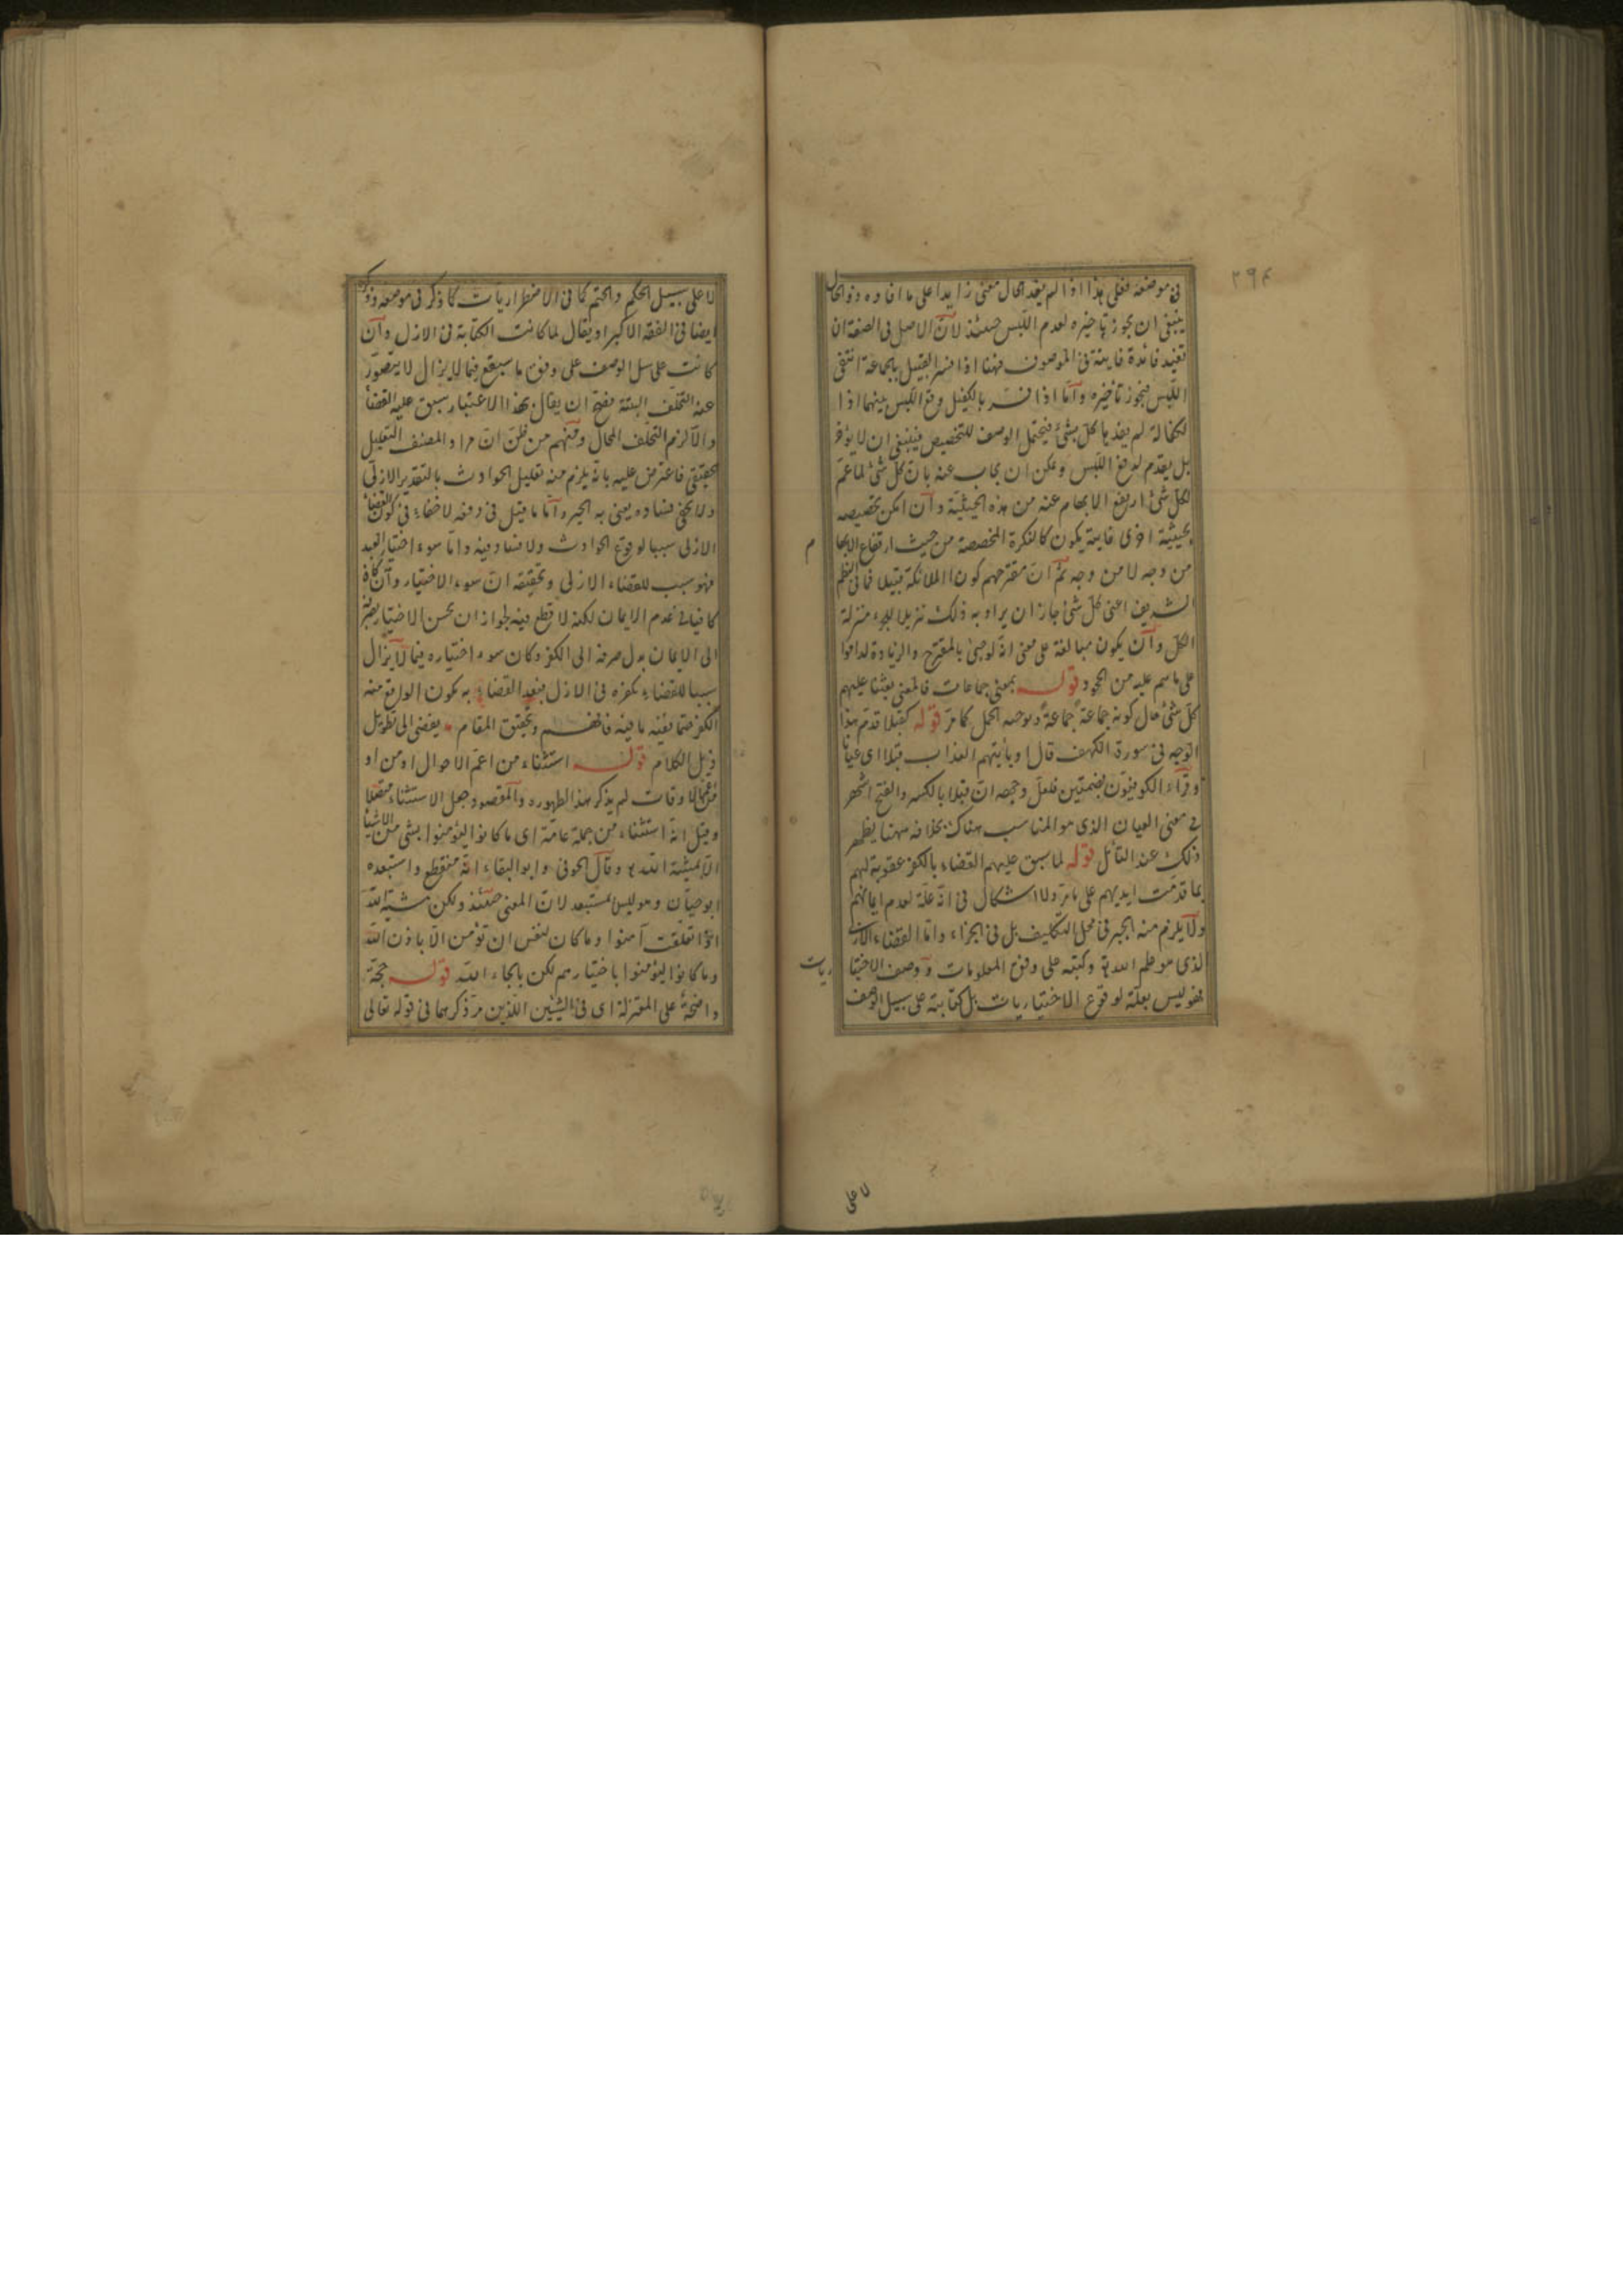 ٢٩٤
في موضعه فعلى هذا اذا لم يفد الحال معنى زايدا على ما افاده ذو الحال
ينبغي ان يجوز تاخيره لعدم اللبس حينئذ لان الاصل في الصفة ان
تفيد فائدة فايتة في الموصوف فههنا اذا فسر القبيل بالجماعة انتفى
اللبس فيجوز تأخيره وأما اذا فسر بالكفيل وقع اللبس بينهما اذا
لكفالة لم يفدها كل شئ فيحتمل الوصف للتخصيص فينبغي ان لا يؤخر
بل يقدم لدفع اللبس ويمكن ان يجاب عنه بان كل شئ لما عم
لكل شئ ارتفع الابهام عنه من هذه الحيثية وان امكن تخصيصه
بحيثية اخرى فايتة يكون كالنكرة المخصصة من حيث ارتفاع الابها
م
من وجه لا من وجه ثم ان مقترحهم كون الملائكة قبيلا فما في النظم
الشريف اعني كل شئ جاز ان يراد به ذلك تنزيلا للجزء منزلة
الكل وان يكون مبالغة على معنى انه لو جئ بالمقترح والزيادة لداموا
على ما هم عليه من الجحود قوله بمعنى جماعات فالمعنى بعثنا عليهم
كل شئ حال كونه جماعة جماعة وتوجيه الحمل كما مر قوله كقبلا قدم هذا
الوجه في سورة الكهف قال او ياتيهم العذاب قبلا اى عيانا
وقراء الكوفيون بضمتين فلعل وجهه ان قبلا بالكسر والفتح اشهر
في معنى العيان الذى هو المناسب هناك بخلافه ههنا يظهر
ذلك عند التأمل قوله لما سبق عليهم القضاء بالكفر عقوبة لهم
بما قدمت ايديهم على ما مر ولا اشكال في انه علة لعدم ايمانهم
ولا يلزم منه الجبر في محل التكليف بل في الجزاء واما القضاء الازلى
الذى هو علم الله تع وكتبه على وفق المعلومات ووصف الاختيا
ريات
فهو ليس بعلة لوقوع الاختياريات بل كتابته على سبيل الوصف
لا على
لا على سبيل الحكم والحتم كما في الاضطراريات كما ذكر في موضعه وذكره
ايضا في الفقه الاكبر او يقال لما كانت الكتابة في الازل وان
كانت على سبيل الوصف على وفق ما سيقع فيما لا يزال لا يتصور
عنه التخلف البتة فصح ان يقال بهذا الاعتبار سبق عليه القضا
والا لزم التخلف المحال ومنهم من ظن ان مراد المصنف التعليل
الحقيقي فاعترض عليه بانه يلزم منه تعليل الحوادث بالتقدير الازلى
ولا يخفى فساده يعنى به الجبر واما ما قيل في دفعه لا خفاء في كون القضا
الازلى سببا لوقوع الحوادث ولا فساد فيه واما سوء اختيار العبد
فهو سبب للقضاء الازلى وتحقيقه ان سوء الاختيار وان كان
كافيا في عدم الايمان لكنه لا قطع فيه لجواز ان يحسن الاختيار بصرفه
الى الايمان بدل صرفه الى الكفر وكان سوء اختياره فيما لا يزال
سببا للقضاء بكفره في الازل فبعد القضاء به يكون الواقع منه
الكفر حتما ففيه ما فيه فافهم وتحقيق المقام يفضى الى تطويل
ذيل الكلام قوله استثناء من اعم الاحوال او من
اعم الاوقات لم يذكر هذا لظهوره والمقصود جعل الاستثناء متصلا
وقيل انه استثناء من جملة عامة اى ما كانوا ليؤمنوا بشئ من الاشيا
الا بمشيئة الله تع وقال الحوفى وابو البقاء انه منقطع واستبعده
ابو حيان وهو ليس بمستبعد لان المعنى حينئذ ولكن مشية الله
اذا تعلقت آمنوا وما كان لنفس ان تؤمن الا باذن الله
وما كانوا ليؤمنوا باختيارهم لكن بالجاء الله قوله حجة
واضحة على المعتزلة اى في الشيئين اللذين مر ذكرهما في قوله تعالى